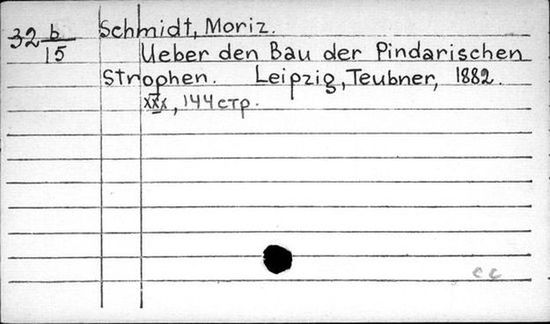 32 b/15
Schmidt, Moriz.
Ueber den Bau der Pindarischen
Strophen. Leipzig, Teubner, 1882.
144 стр.
cc